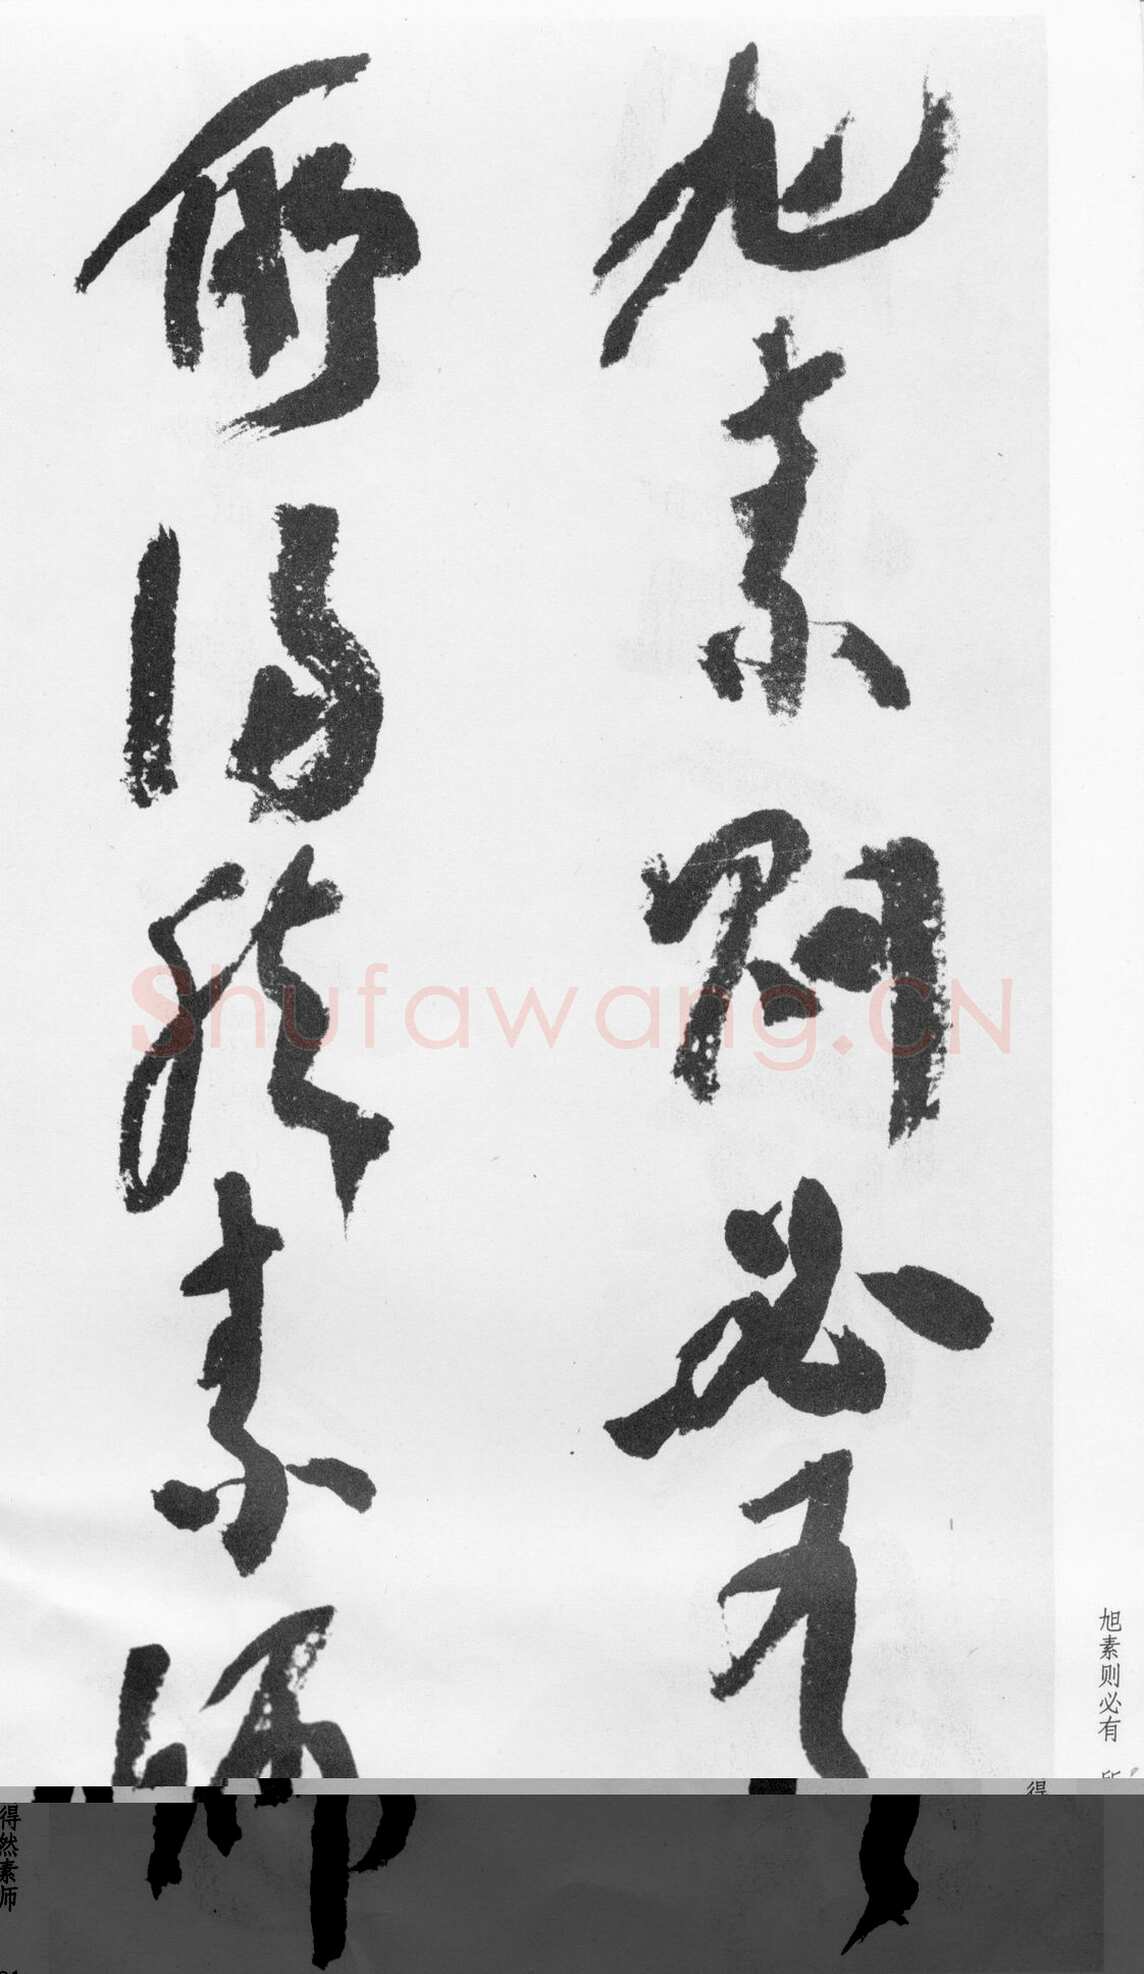 旭素则必有
所得然素师
旭素则必有 所
得
得然素师
Shufawang.CN